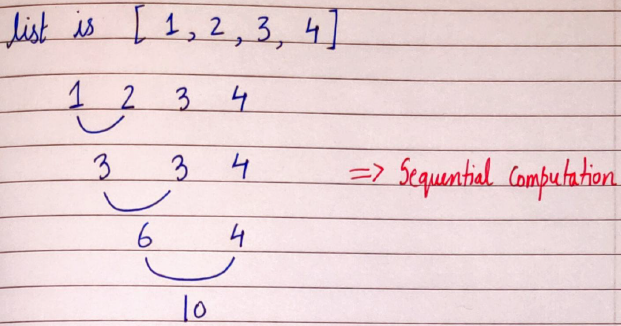 list is [1, 2, 3, 4]
1 2 3 4
3 3 4 => Sequential Computation
6 4
10